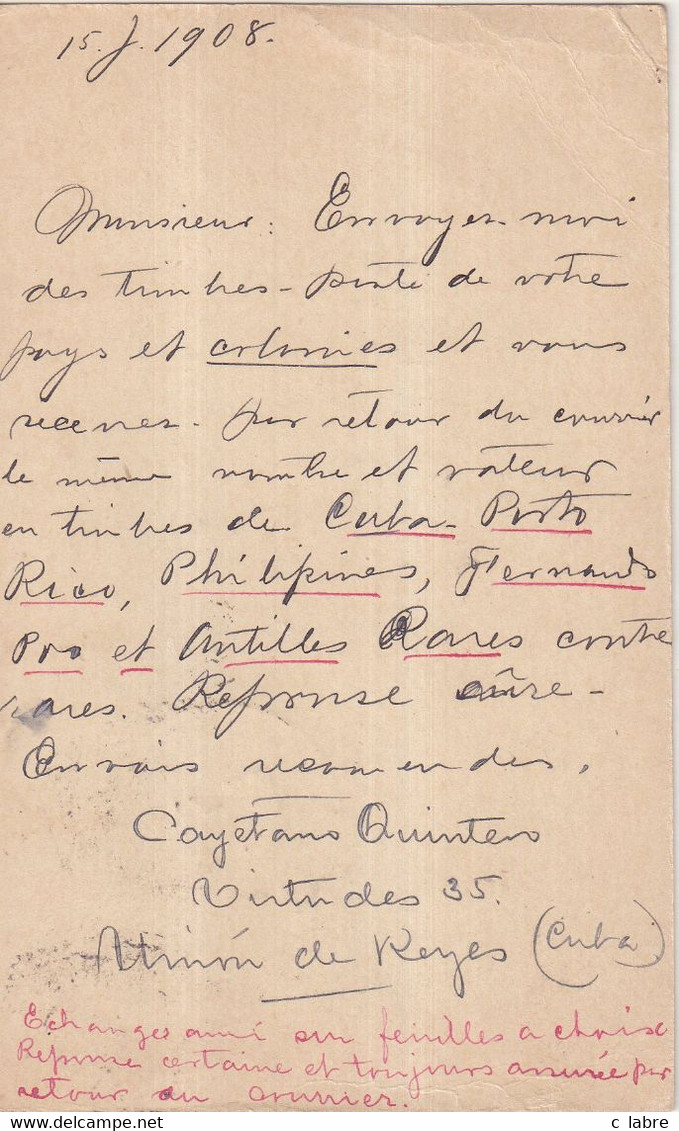 15. J. 1908.
Monsieur: Envoyez-moi
des timbres-poste de votre
pays et colonies et vous
recevrez-par retour du courrier
le même nombre et valeur
en timbres de Cuba-Porto
Rico, Philipines, Fernando
Poo et Antilles Rares contre
rares. Reponse sûre-
Envois recomendes.
Cayetano Quintero
Virtudes 35.
Unión de Reyes (Cuba)
Echanges aussi sur feuilles a choix
Reponse certaine et toujours assurée par
retour du courrier.
c labre